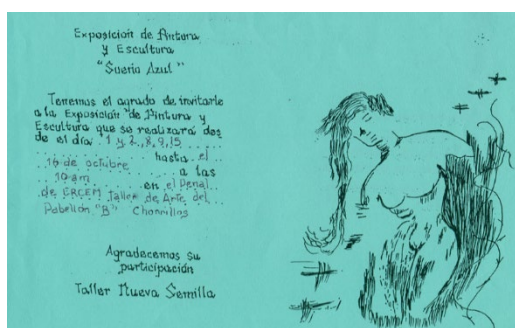 Exposición de Pintura
y Escultura
"Sueño Azul"
Tenemos el agrado de invitarle
a la Exposición de Pintura y
Escultura que se realizará des
de el día 1 y 2, 8, 9, 15
hasta el
16 de octubre a las
10 am en el Penal
de ERCEM Taller de Arte del
Pabellón "B" Chorrillos
Agradecemos su
participación
Taller Nueva Semilla